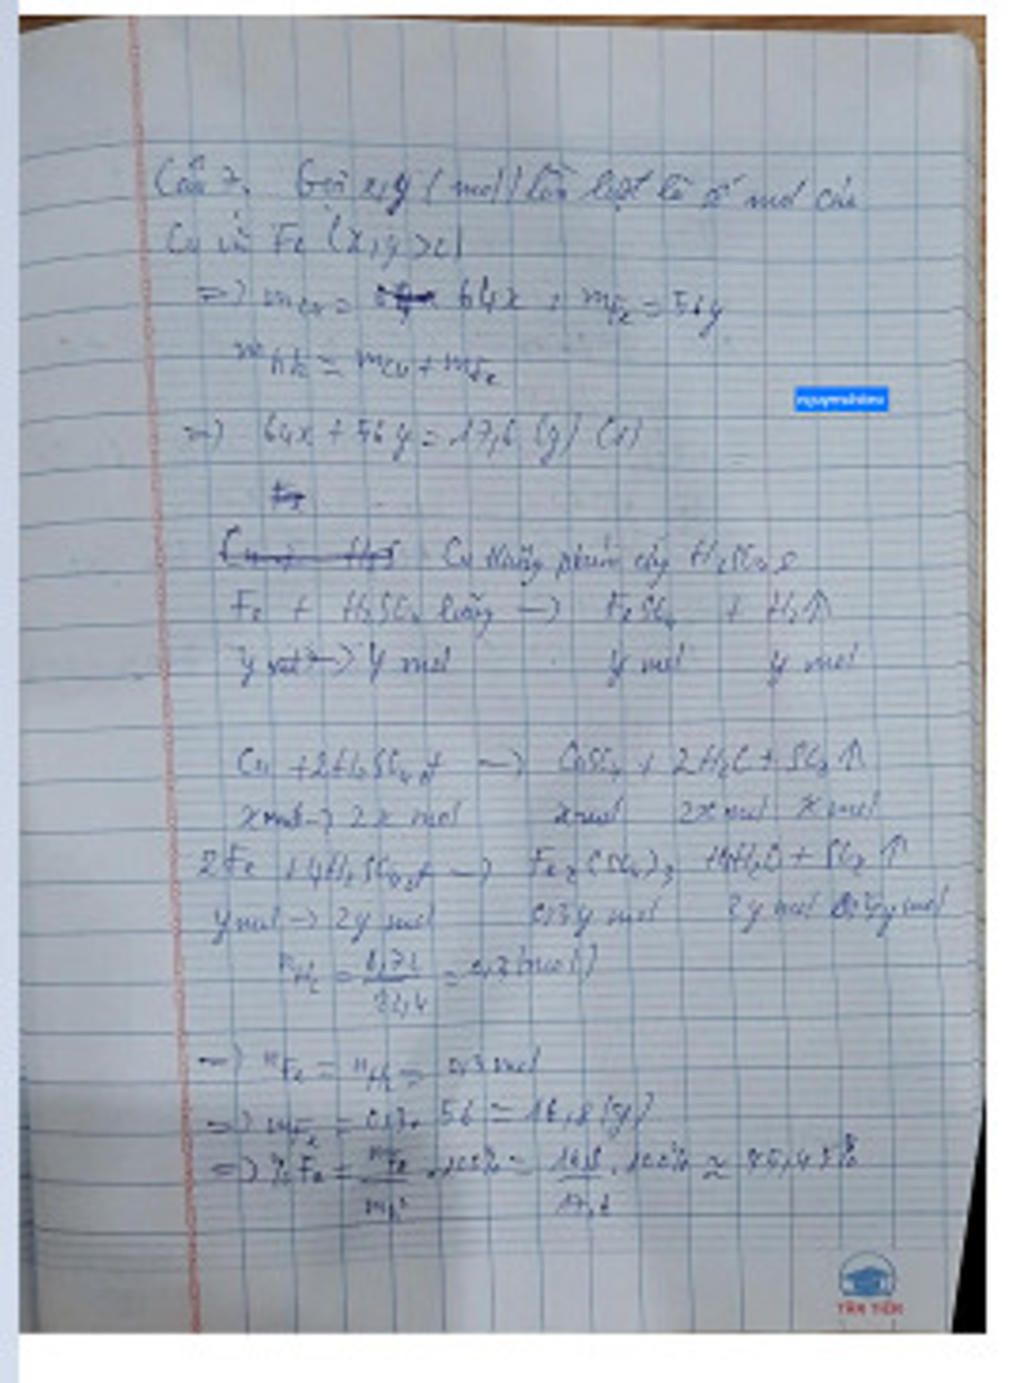 Câu 7. Gọi x, y (mol) lần lượt là số mol của
Cu và Fe (x, y >
=> mCu = 64x , mFe = 56y
mhh = mCu + mFe
=> 64x + 56y = 17,6 (g)
Cu không phản ứng
Fe + H2SO4 loãng -> FeSO4 + H2↑
y mol -> y mol y mol y mol
Cu + 2H2SO4 đ -> CuSO4 + 2H2O + SO2↑
x mol -> 2x mol x mol 2x mol x mol
2Fe + H2SO4 đ -> Fe2(SO4)3 H2O + SO2↑
y mol -> 2y mol y mol 2y mol y mol
nH2 = 22,4 = (mol)
=> nFe = nH2 = 0,3 mol
=> mFe = 0,3. 56 = 16,8 (g)
=> %Fe = mFe/mhh .100% = 16,8/17,6 .100% ≈
TÂN TIẾN